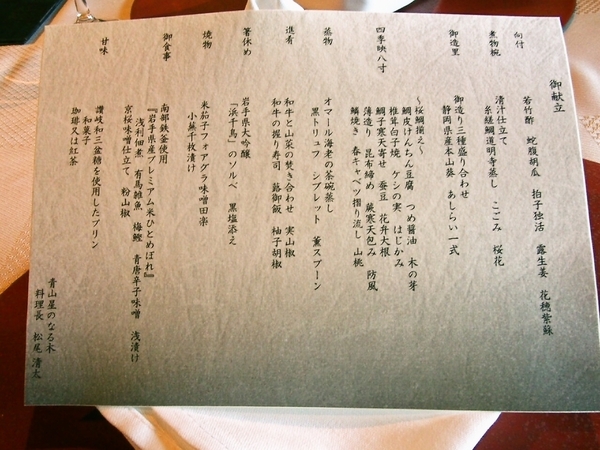 御献立
向付
若竹酢 蛇腹胡瓜 拍子独活 露生姜 花穂紫蘇
煮物椀
清汁仕立て
糸縒鯛道明寺蒸し こごみ 桜花
御造里
御造り三種盛り合わせ
静岡県産本山葵 あしらい一式
四季映八寸
〜桜鯛揃え〜
鯛皮けんちん豆腐 つめ醤油 木の芽
椎茸白子焼 ケシの実 はじかみ
鯛子寒天寄せ 蚕豆 花弁大根
薄造り 昆布締め 蕨寒天包み 防風
鱗焼き 春キャベツ摺り流し 山桃
蒸物
オマール海老の茶碗蒸し
黒トリュフ シブレット 薫スプーン
進肴
和牛と山菜の焚き合わせ 実山椒
和牛の握り寿司 蕗御飯 柚子胡椒
箸休め
岩手県大吟醸
「浜千鳥」のソルベ 黒塩添え
焼物
米茄子フォアグラ味噌田楽
小蕪千枚漬け
御食事
南部鉄釜使用
『岩手県産プレミアム米ひとめぼれ』
浅利佃煮 有馬雑魚 梅鰹 青唐辛子味噌 浅漬け
京桜味噌仕立て 粉山椒
甘味
讃岐和三盆糖を使用したプリン
和菓子
珈琲又は紅茶
青山星のなる木
料理長 松尾 清太